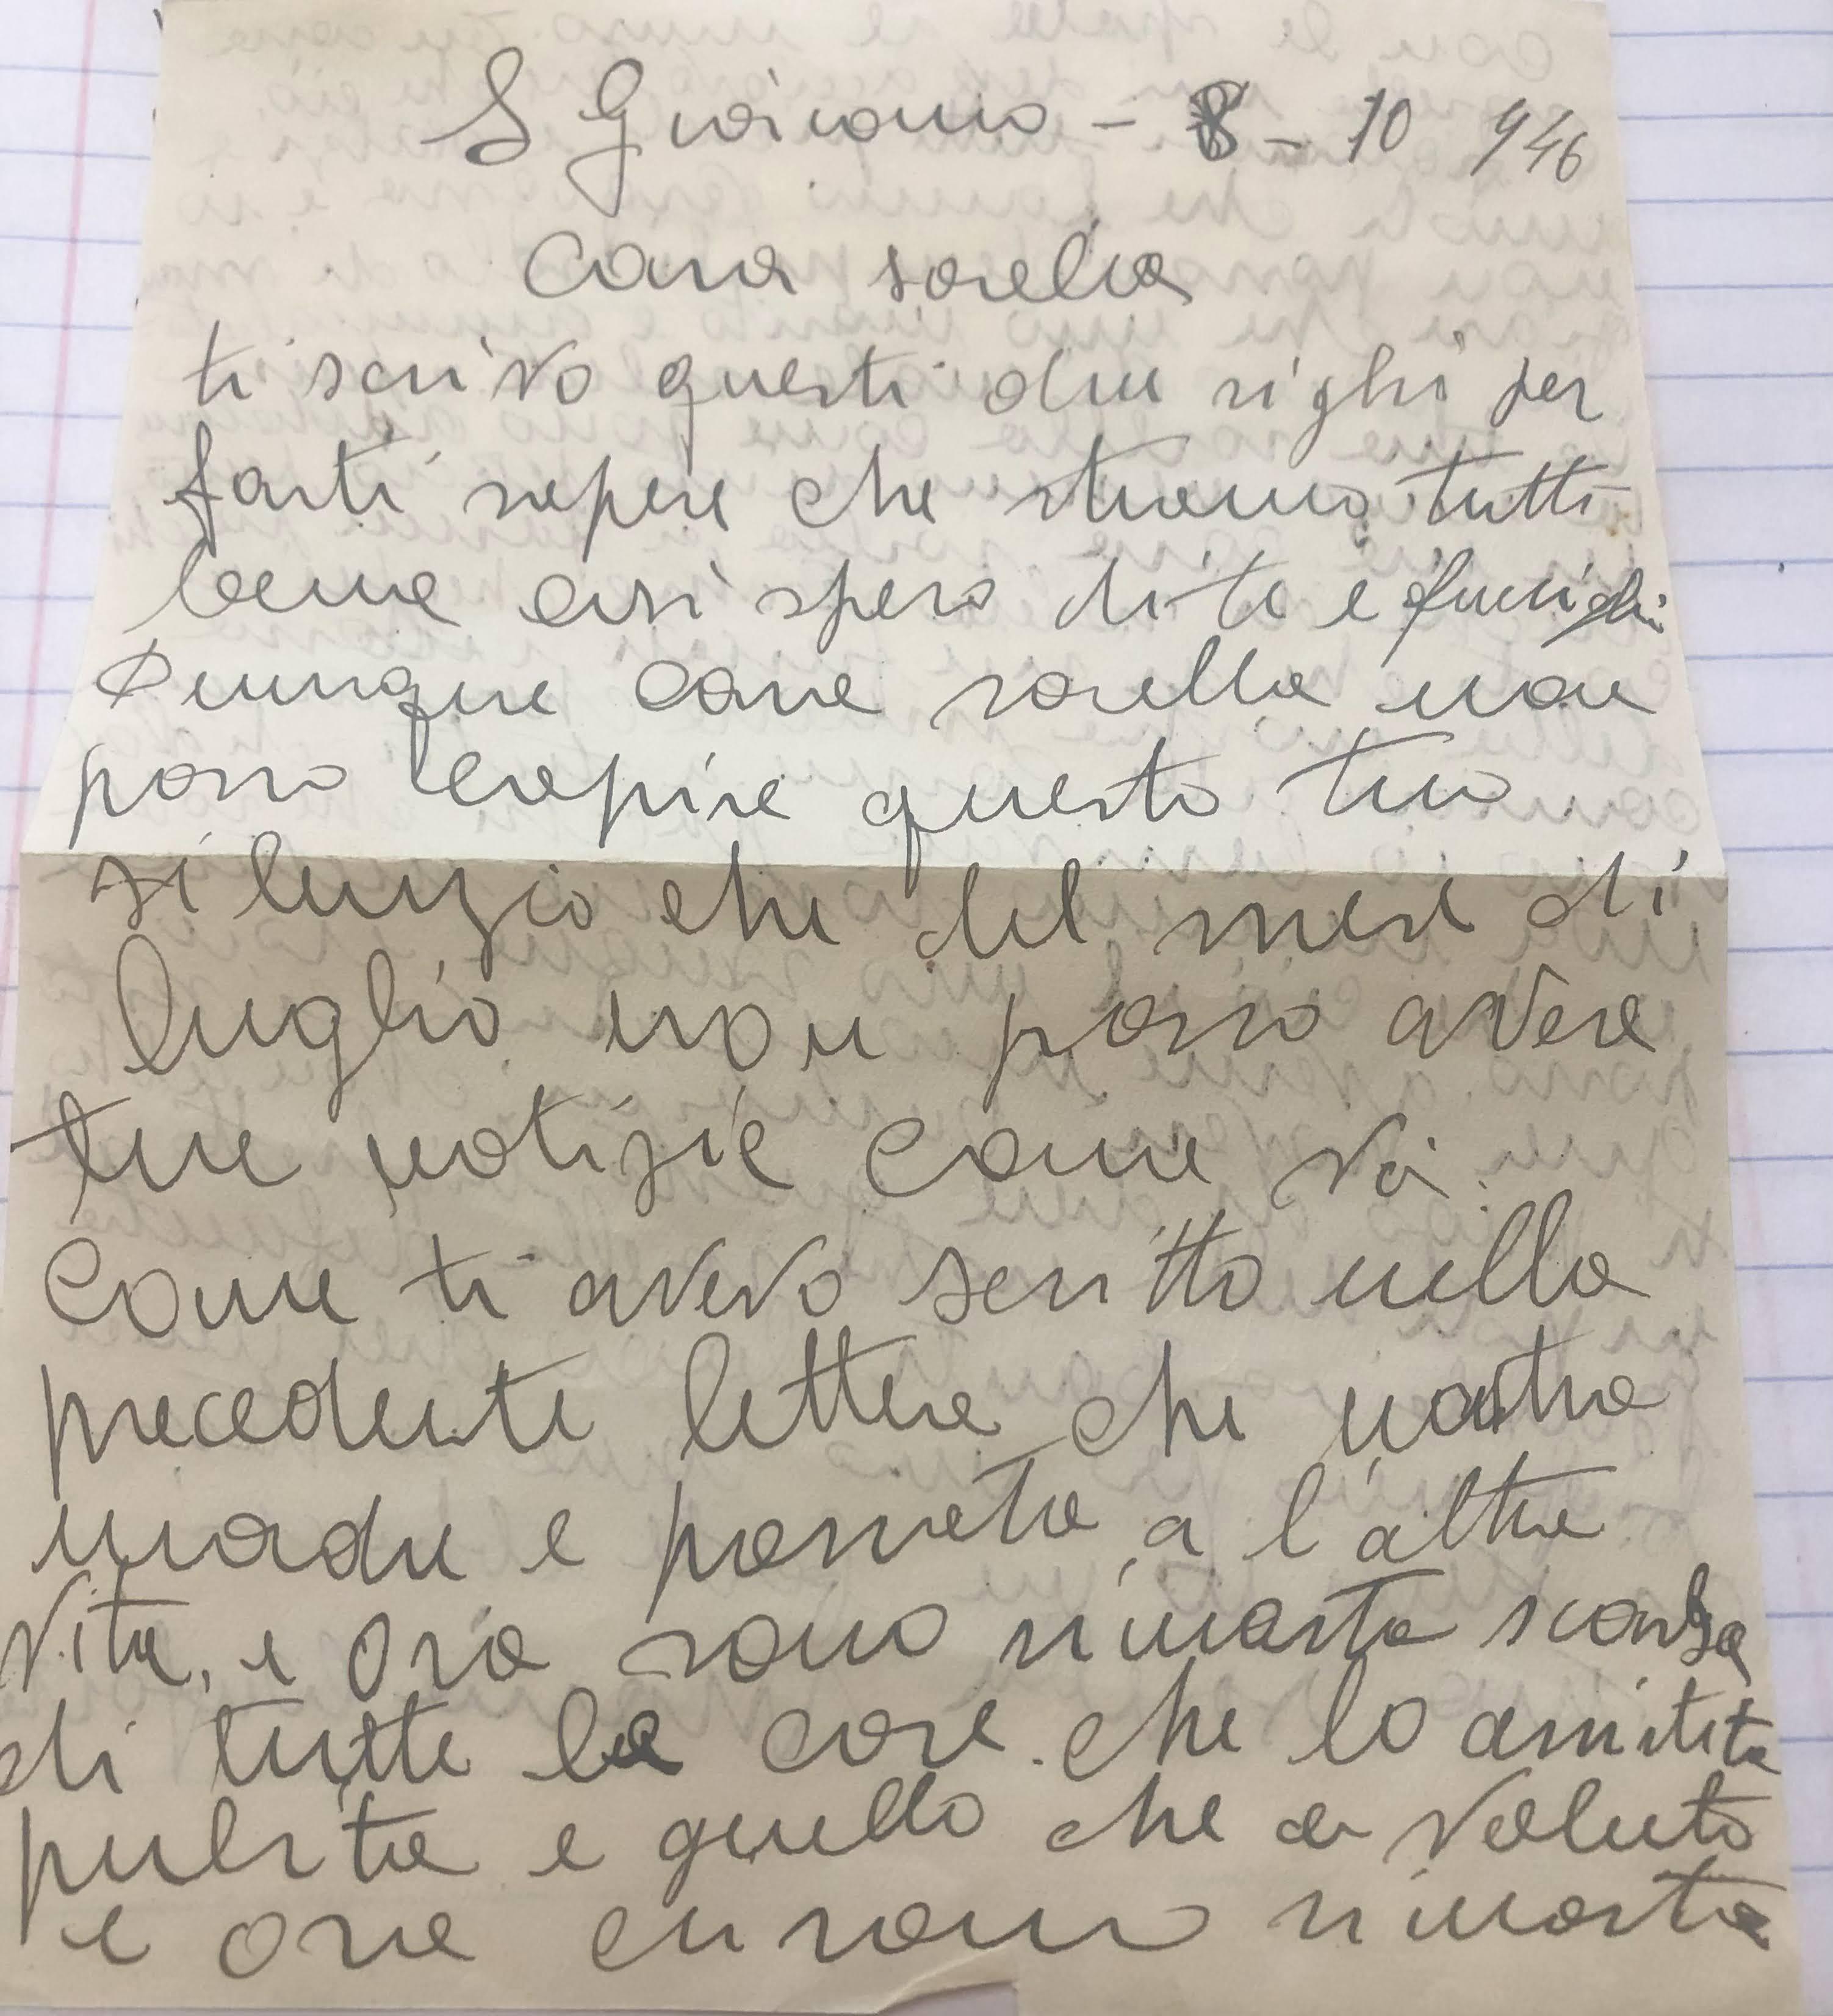 S Giacomo - 8 - 10 946
Cara sorella
ti scrivo questi due righi per
farti sapere che stiamo tutti
bene cosi spero di te e fucigli
Dunque cara sorella non
posso capire questo tuo
silenzio che del mese di
luglio non posso avere
tue notizie come va.
Come ti avevo scritto nella
precedente lettera che nostra
madre e passata a l'altra
vita, e ora sono rimasta
di tutte le cose. che lo
pulita e quello che a voluto
e ora rimasta